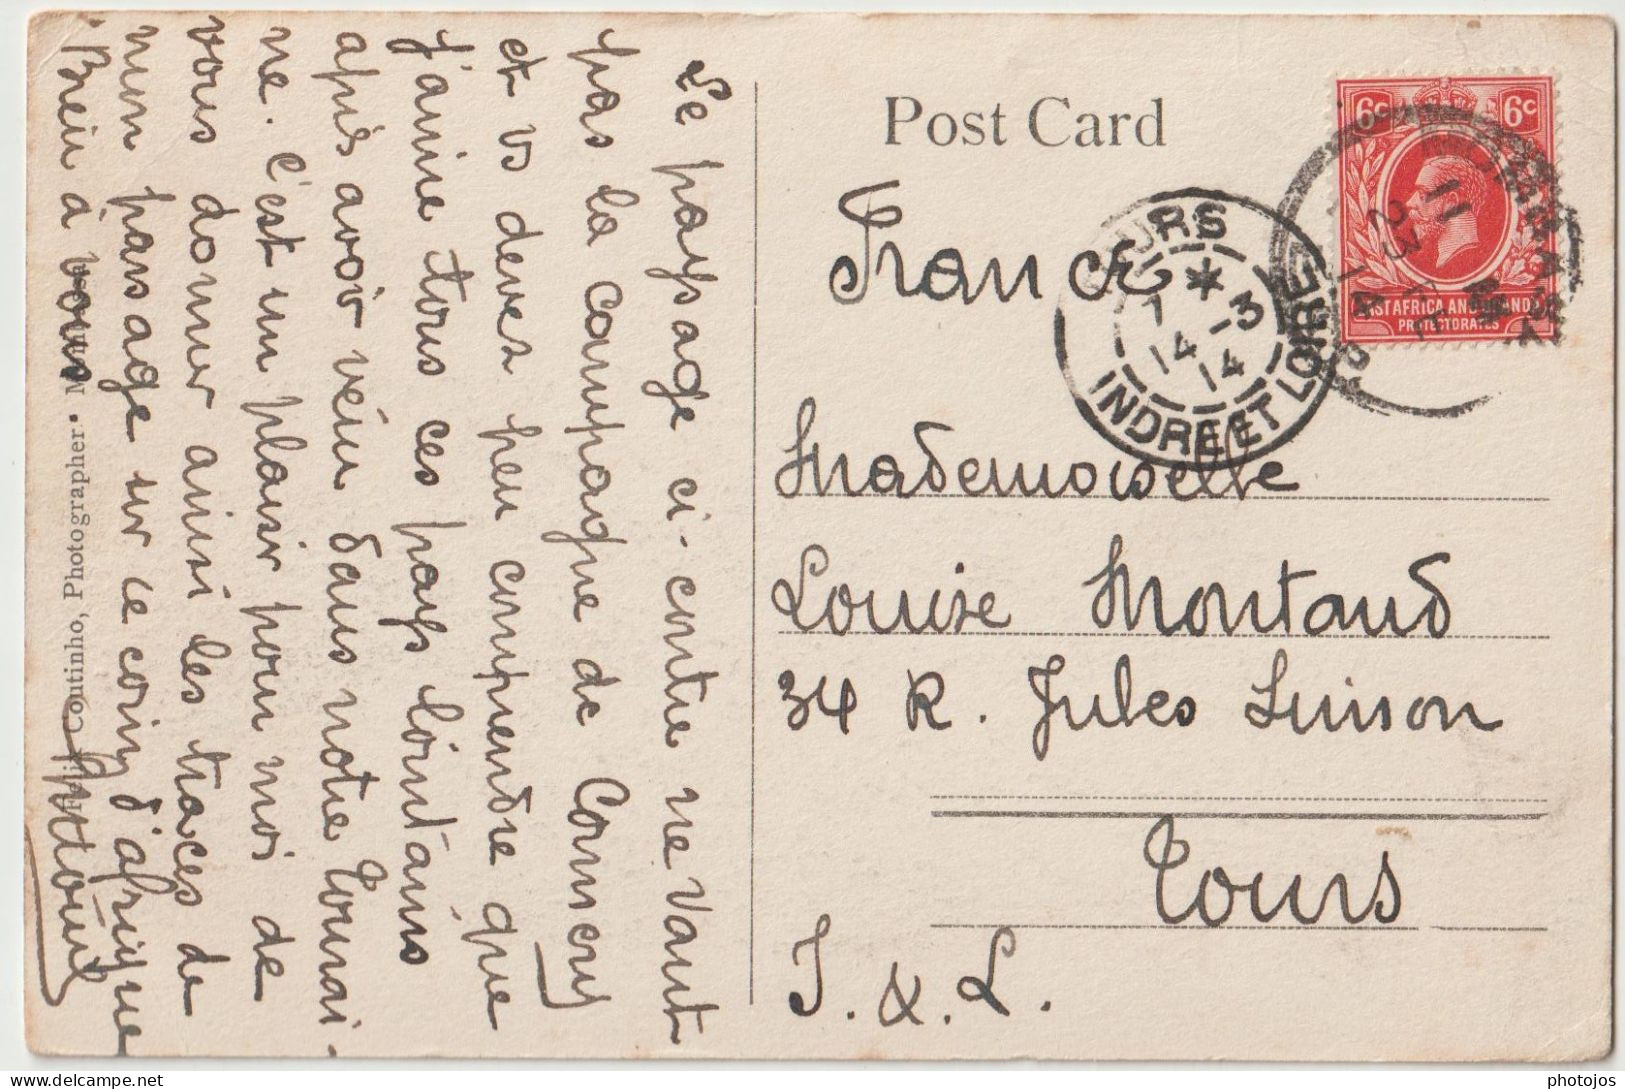 Le paysage ci-contre ne vaut
pas la campagne de Cormery
et vs devez peu comprendre que
j'aime tous ces pays lointains
après avoir vécu dans notre Tourai-
ne. C'est un plaisir pour moi de
vous donner ainsi les traces de
mon passage sur ce coin d'afrique
Bien à vous
Coutinho, Photographer.
Post Card
France
Mademoiselle
Louise Montaud
34 R. Jules Simon
Tours
I. & L.
6c 6c
EAST AFRICA AND UGANDA
PROTECTORATES
TOURS
14 - 3
14
INDRE ET LOIRE
11
23 FE
14